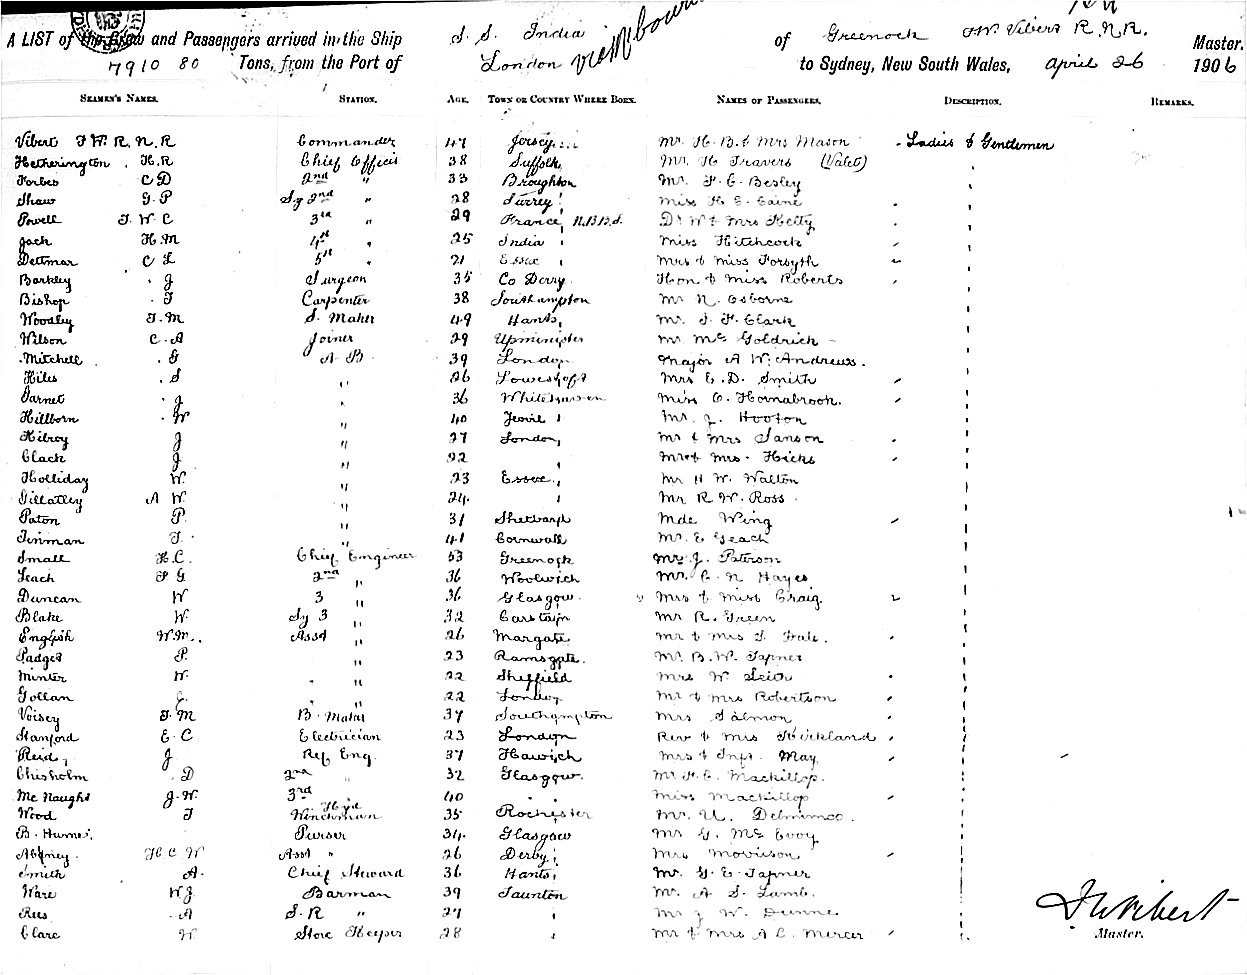 A LIST of the Crew and Passengers arrived in the Ship S. S. India of Greenock W. Vibert R.N.R. Master.
7910 80 Tons, from the Port of London to Sydney, New South Wales, April 26 1906
SEAMEN'S NAMES. STATION. AGE. TOWN OR COUNTRY WHERE BORN. NAMES OF PASSENGERS. DESCRIPTION. REMARKS.
Vibert W. R. N. R Commander 47 Jersey Mr H. B. & Mrs Mason Ladies & Gentlemen
Hetherington H. R Chief Officer 38 Suffolk Mr H Travers (Valet)
Forbes C D 2nd " 33 Broughton Mr. F. C. Besley
Shaw G. P Sy 2nd " 28 Surrey Miss H. E. Caine
Powell T. W. C 3rd " 29 France N.B.B.S. Dr W & Mrs Kelty
Jack H. M 4th " 25 India Miss Hitchcock
Dettmar C L 5th " 21 Essex Mrs & Miss Forsyth
Barkley J Surgeon 35 Co Derry Hon & Miss Roberts
Bishop F Carpenter 38 Southampton Mr N. Osborne
Woodley F. M S. Maker 49 Hants Mr. J. F. Clark
Wilson C. A Joiner 29 Upminster Mr McGoldrich
Mitchell G A B 39 London Major A W. Andrews.
Hiles S " 26 Lowestoft Mrs E. D. Smith
Garnet J " 36 Whitehaven Miss C. Hornabrook.
Hillborn W " 40 Yeovil Mr. J. Hooton
Kilroy J " 27 London Mr & Mrs Sanson
Clack J " 22 Mr & Mrs. Hicks
Holliday W. " 23 Essex Mr H W. Walton
Gillatley A W. " 24 Mr R W. Ross
Paton P. " 31 Shetland Mde Wing
Tinman T. " 41 Cornwall Mr. E Geach
Small H. C. Chief Engineer 53 Greenock Mr J. Paterson
Leach F G 2nd " 36 Woolwich Mr. C. N Hayes
Duncan W 3 " 36 Glasgow Mrs & Miss Craig
Blake W. Sy 3 " 32 Carstairs Mr R. Green
English W. W. Asst " 26 Margate Mr & Mrs T. Hale.
Padget P. " 23 Ramsgate. Mr. B. W. Tapner
Minter W. " 22 Sheffield Mrs W Leith
Gollan " 22 London Mr & Mrs Robertson
Voisey F. M B. Maker 37 Southampton Mrs Salmon
Stanford E. C Electrician 23 London Rev & Mrs Kirkland
Reid J Ref Eng. 37 Harwich Mrs & Inft. May
Chisholm D 2nd 32 Glasgow Mr F. C. Mackillop.
McNaught J. W. 3rd 40 Miss Mackillop
Wood T Hyd Winchman 35 Rochester Mr. U. Delmimco.
B. Humes Purser 34 Glasgow Mr G. McEvoy
Abney H C W Asst " 26 Derby Mrs Morrison
Smith A. Chief Steward 36 Hants Mr. G. E. Tapner
Ware W J Barman 39 Taunton Mr. A S. Lamb.
Rees A S. R " 27 Mr J W. Dunne
Clare W Store Keeper 28 Mr & Mrs A C. Mercer
Vibert
Master.